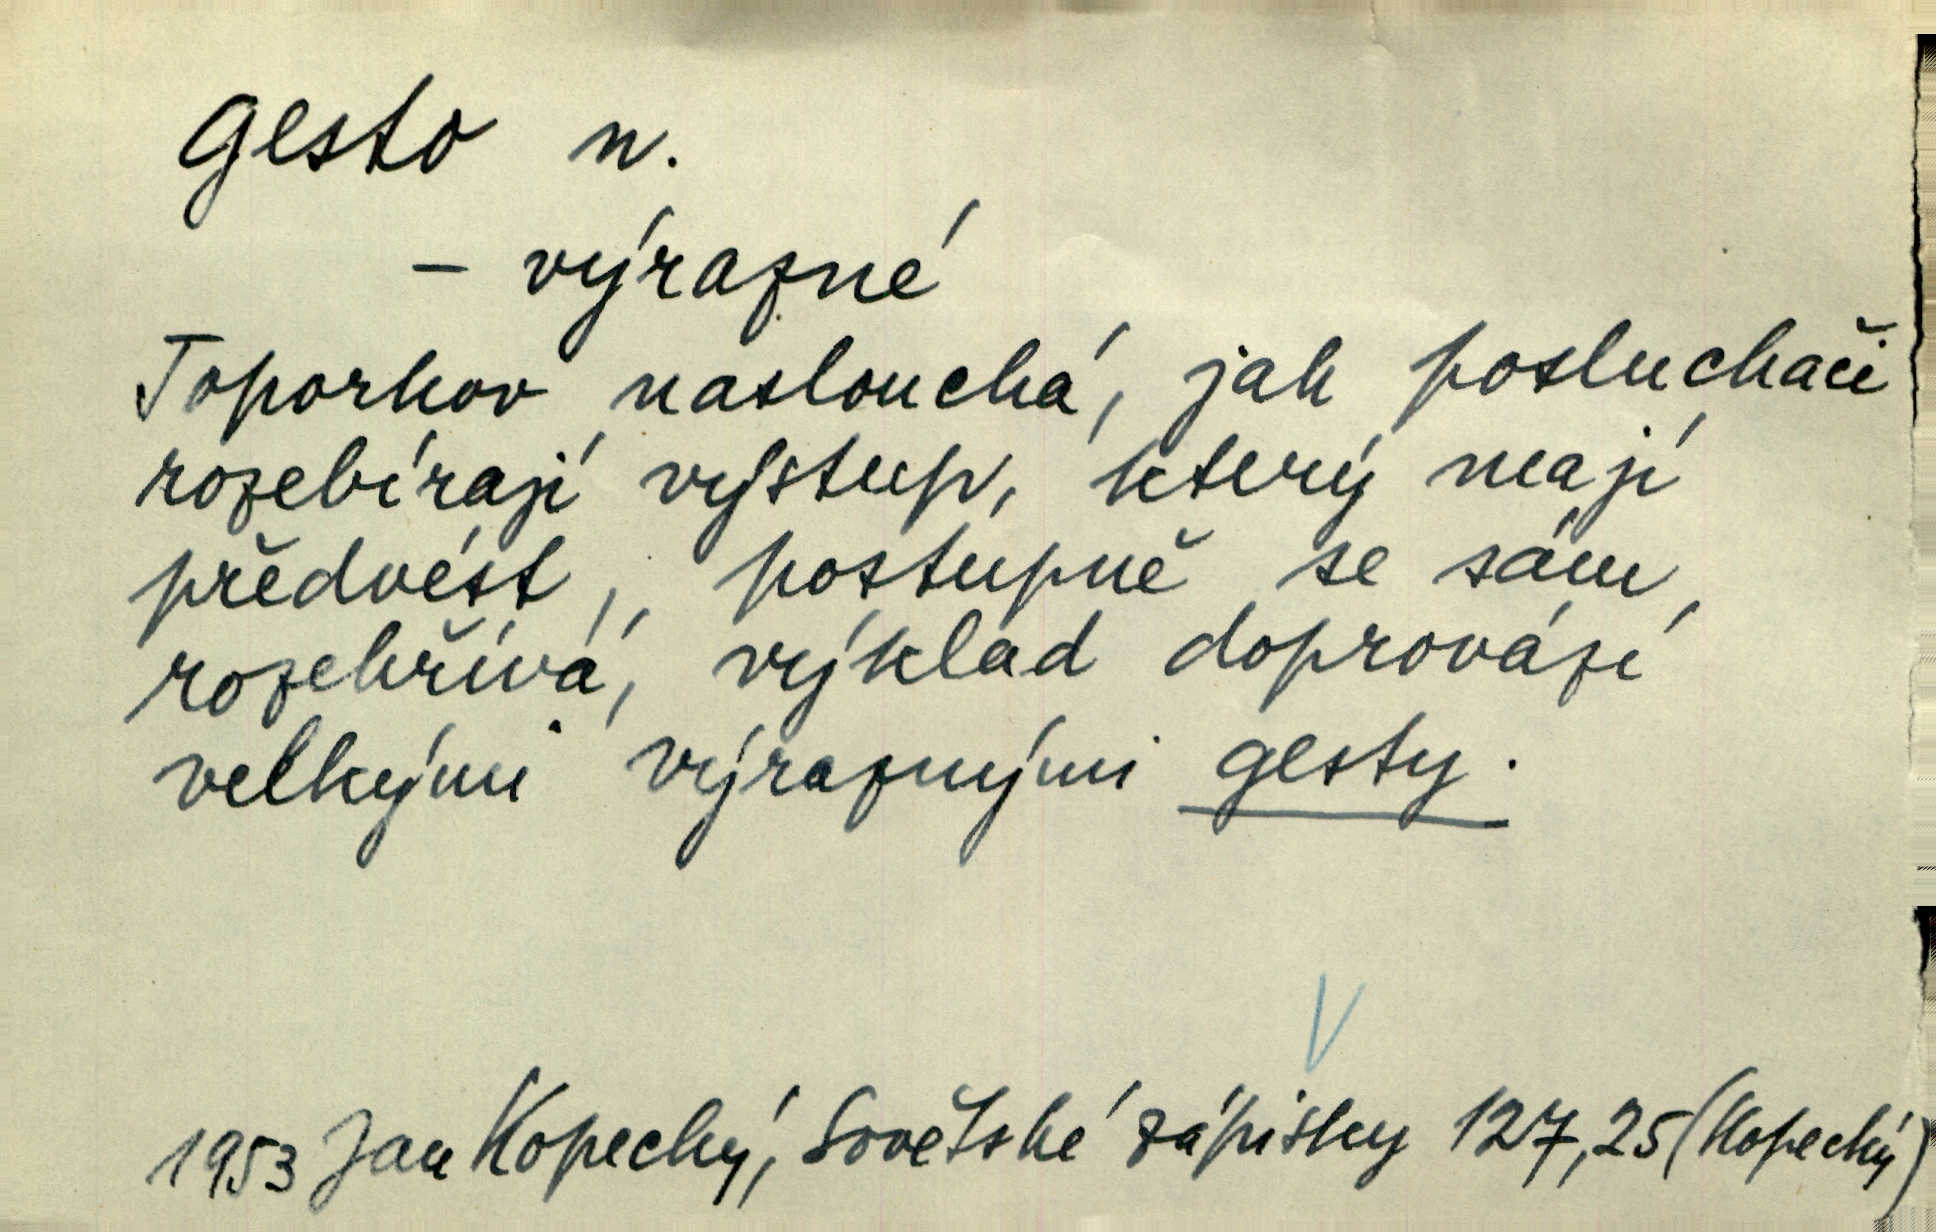 gesto n.
– výrazné
Toporkov naslouchá, jak posluchači
rozebírají výstup, který mají
předvést, postupně se sám
rozehřívá, výklad doprovází
velkými výraznými gesty.
V
1953 Jan Kopecký, Sovětské zápisky 127,25 (Kopecký)